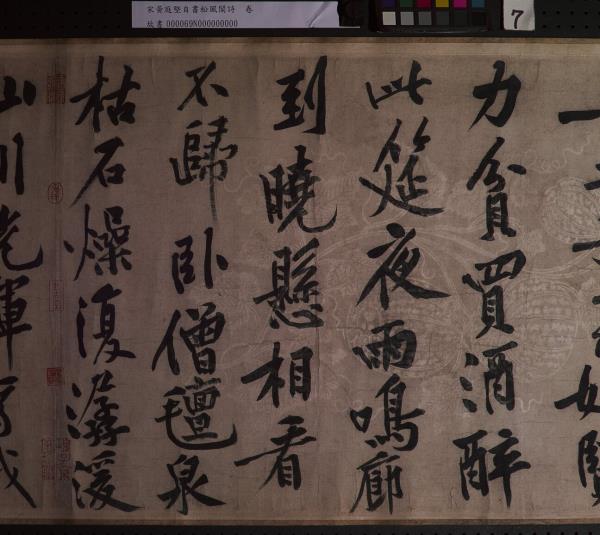 宋黃庭堅自書松風閣詩 卷
故書 000069N000000000
7
力貧買酒醉
此筵夜雨鳴廊
到曉懸相看
不歸臥僧氈泉
枯石燥復潺湲
山川光輝爲我